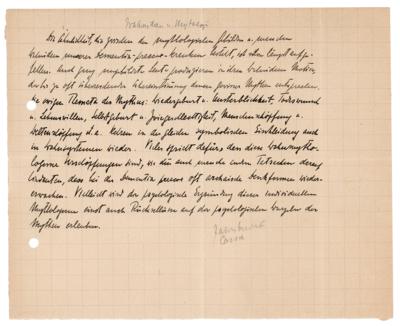 Wahnidee u. Mythologie
Die Ähnlichkeit, die zwischen den mythologischen Gebilden u. manchen
Wahnideen unserer Dementia-praecox-Kranken besteht, ist schon längst aufge-
fallen. Auch ganz ungebildete Leute produzieren in ihren Wahnideen Motive,
die bis zu oft überraschender Übereinstimmung denen Mythen entsprechen.
Die ewigen Themata des Mythus: Wiedergeburt u. Unsterblichkeit,
u. Selbstgeburt u. Zwiegeschlechtigkeit, Menschenschöpfung u.
Weltenschöpfung u.a. kehren in der gleichen symbolischen Einkleidung auch
in Wahnsystemen wieder. Vieles spricht dafür, dass diese
Verschöpfungen sind, wie denn auch manche andern Tatsachen darauf
hindeuten, dass bei der Dementia praecox oft archaische Denkformen wieder
erwachen. Vielleicht wird die psychologische Ergründung dieser individuellen
Mythologeme einst auch Rückschlüsse auf den psychologischen der
Mythen erlauben.